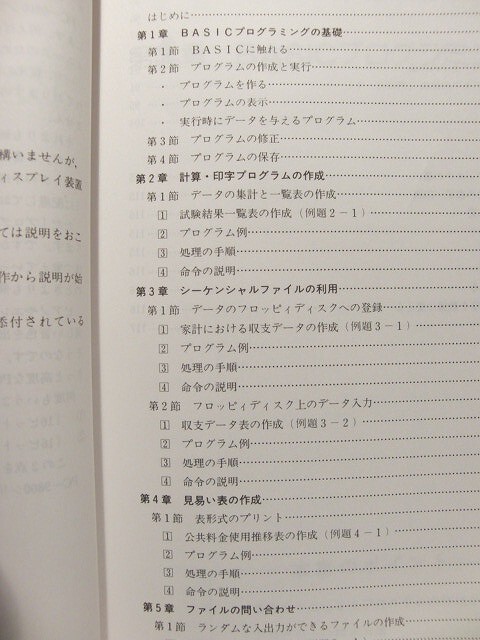 構いませんが,
ィスプレイ装置
ては説明をおこ
作から説明が始
添付されている
はじめに
第1章 BASICプログラミングの基礎
第1節 BASICに触れる
第2節 プログラムの作成と実行
・ プログラムを作る
・ プログラムの表示
・ 実行時にデータを与えるプログラム
第3節 プログラムの修正
第4節 プログラムの保存
第2章 計算・印字プログラムの作成
第1節 データの集計と一覧表の作成
1 試験結果一覧表の作成(例題2-1)
2 プログラム例
3 処理の手順
4 命令の説明
第3章 シーケンシャルファイルの利用
第1節 データのフロッピィディスクへの登録
1 家計における収支データの作成(例題3-1)
2 プログラム例
3 処理の手順
4 命令の説明
第2節 フロッピィディスク上のデータ入力
1 収支データ表の作成(例題3-2)
2 プログラム例
3 処理の手順
4 命令の説明
第4章 見易い表の作成
第1節 表形式のプリント
1 公共料金使用推移表の作成(例題4-1)
2 プログラム例
3 処理の手順
4 命令の説明
第5章 ファイルの問い合わせ
第1節 ランダムな入出力ができるファイルの作成